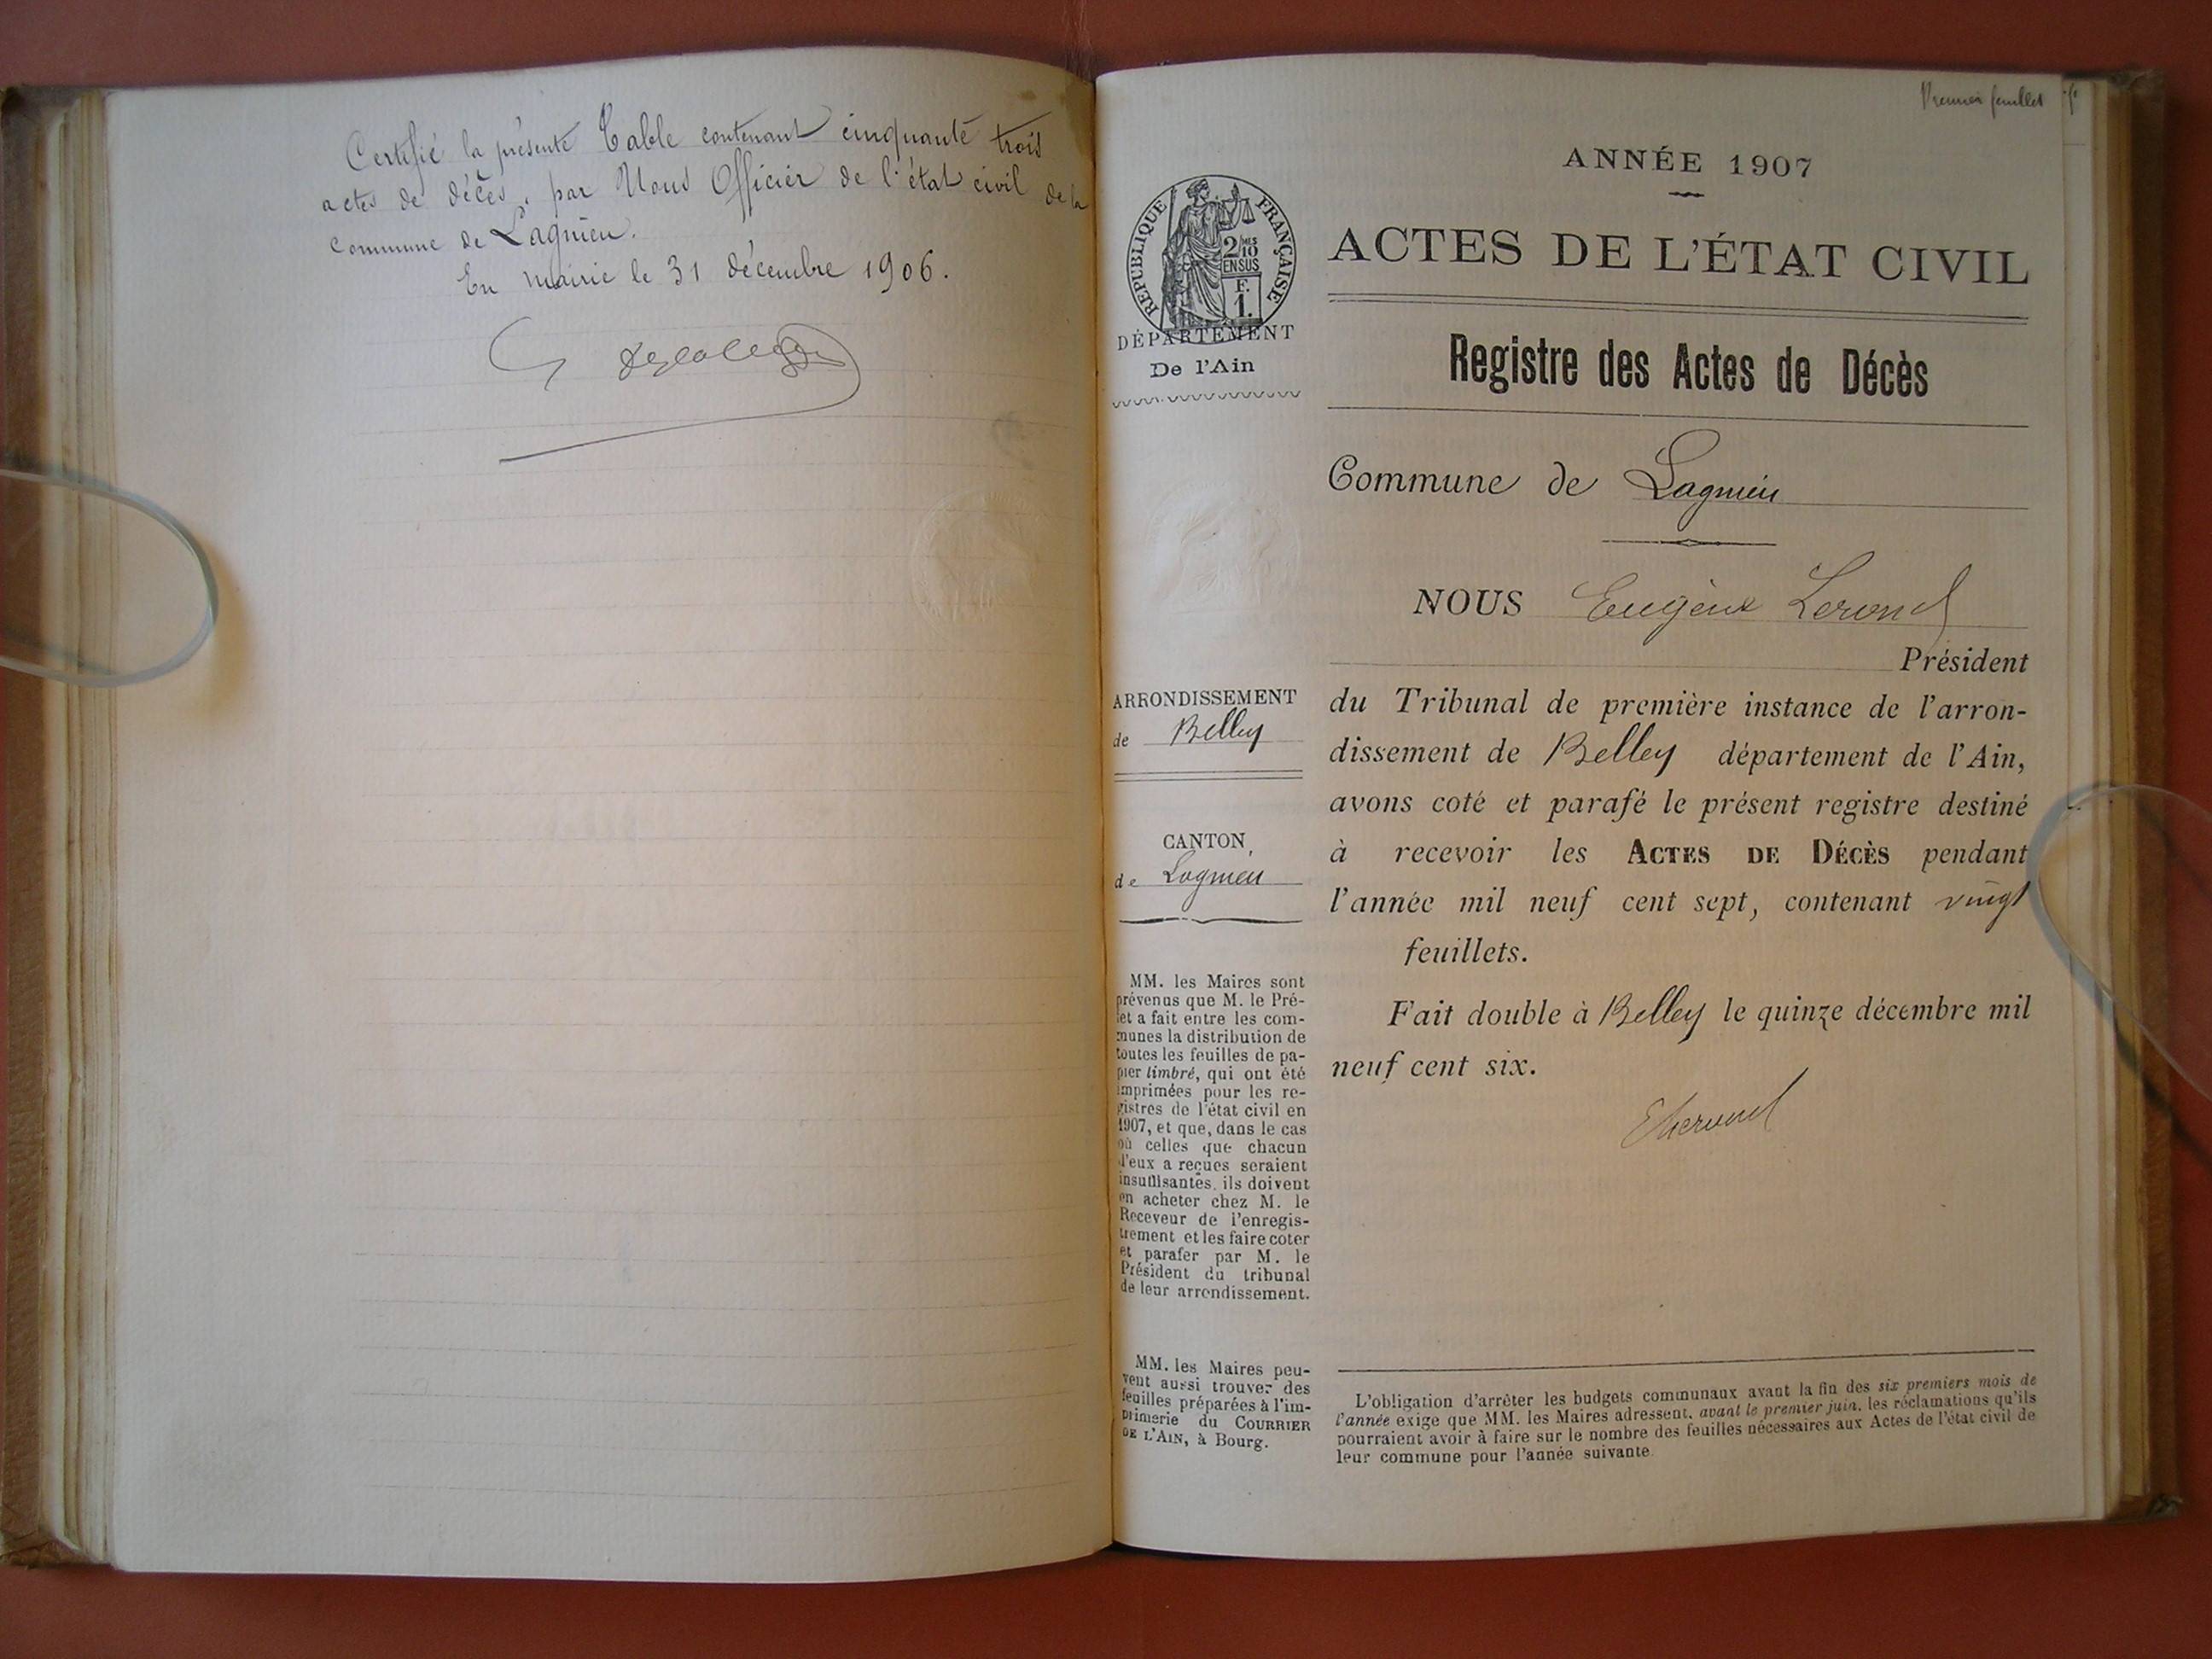 Certifié la présente Table contenant cinquante trois
actes de décès, par Nous Officier de l'état civil de la
Commune de Lagnieu.
En mairie le 31 décembre 1906.
Premier feuillet
ANNÉE 1907
RÉPUBLIQUE FRANÇAISE
2/10 MES
EN SUS
F.
1.
ACTES DE L'ÉTAT CIVIL
DÉPARTEMENT
De l'Ain
Registre des Actes de Décès
Commune de Lagnieu
NOUS Eugène
Président
du Tribunal de première instance de l'arron-
dissement de Belley département de l'Ain,
avons coté et parafé le présent registre destiné
à recevoir les ACTES DE DÉCÈS pendant
l'année mil neuf cent sept, contenant vingt
feuillets.
Fait double à Belley le quinze décembre mil
neuf cent six.
ARRONDISSEMENT
de Belley
CANTON
de Lagnieu
MM. les Maires sont
prévenus que M. le Pré-
fet a fait entre les com-
munes la distribution de
toutes les feuilles de pa-
pier timbré, qui ont été
imprimées pour les re-
gistres de l'état civil en
1907, et que, dans le cas
où celles que chacun
d'eux a reçues seraient
insuffisantes, ils doivent
en acheter chez M. le
Receveur de l'enregis-
trement et les faire coter
et parafer par M. le
Président du tribunal
de leur arrondissement.
MM. les Maires peu-
vent aussi trouver des
feuilles préparées à l'im-
primerie du COURRIER
DE L'AIN, à Bourg.
L'obligation d'arrêter les budgets communaux avant la fin des six premiers mois de
l'année exige que MM. les Maires adressent, avant le premier juin, les réclamations qu'ils
pourraient avoir à faire sur le nombre des feuilles nécessaires aux Actes de l'état civil de
leur commune pour l'année suivante.